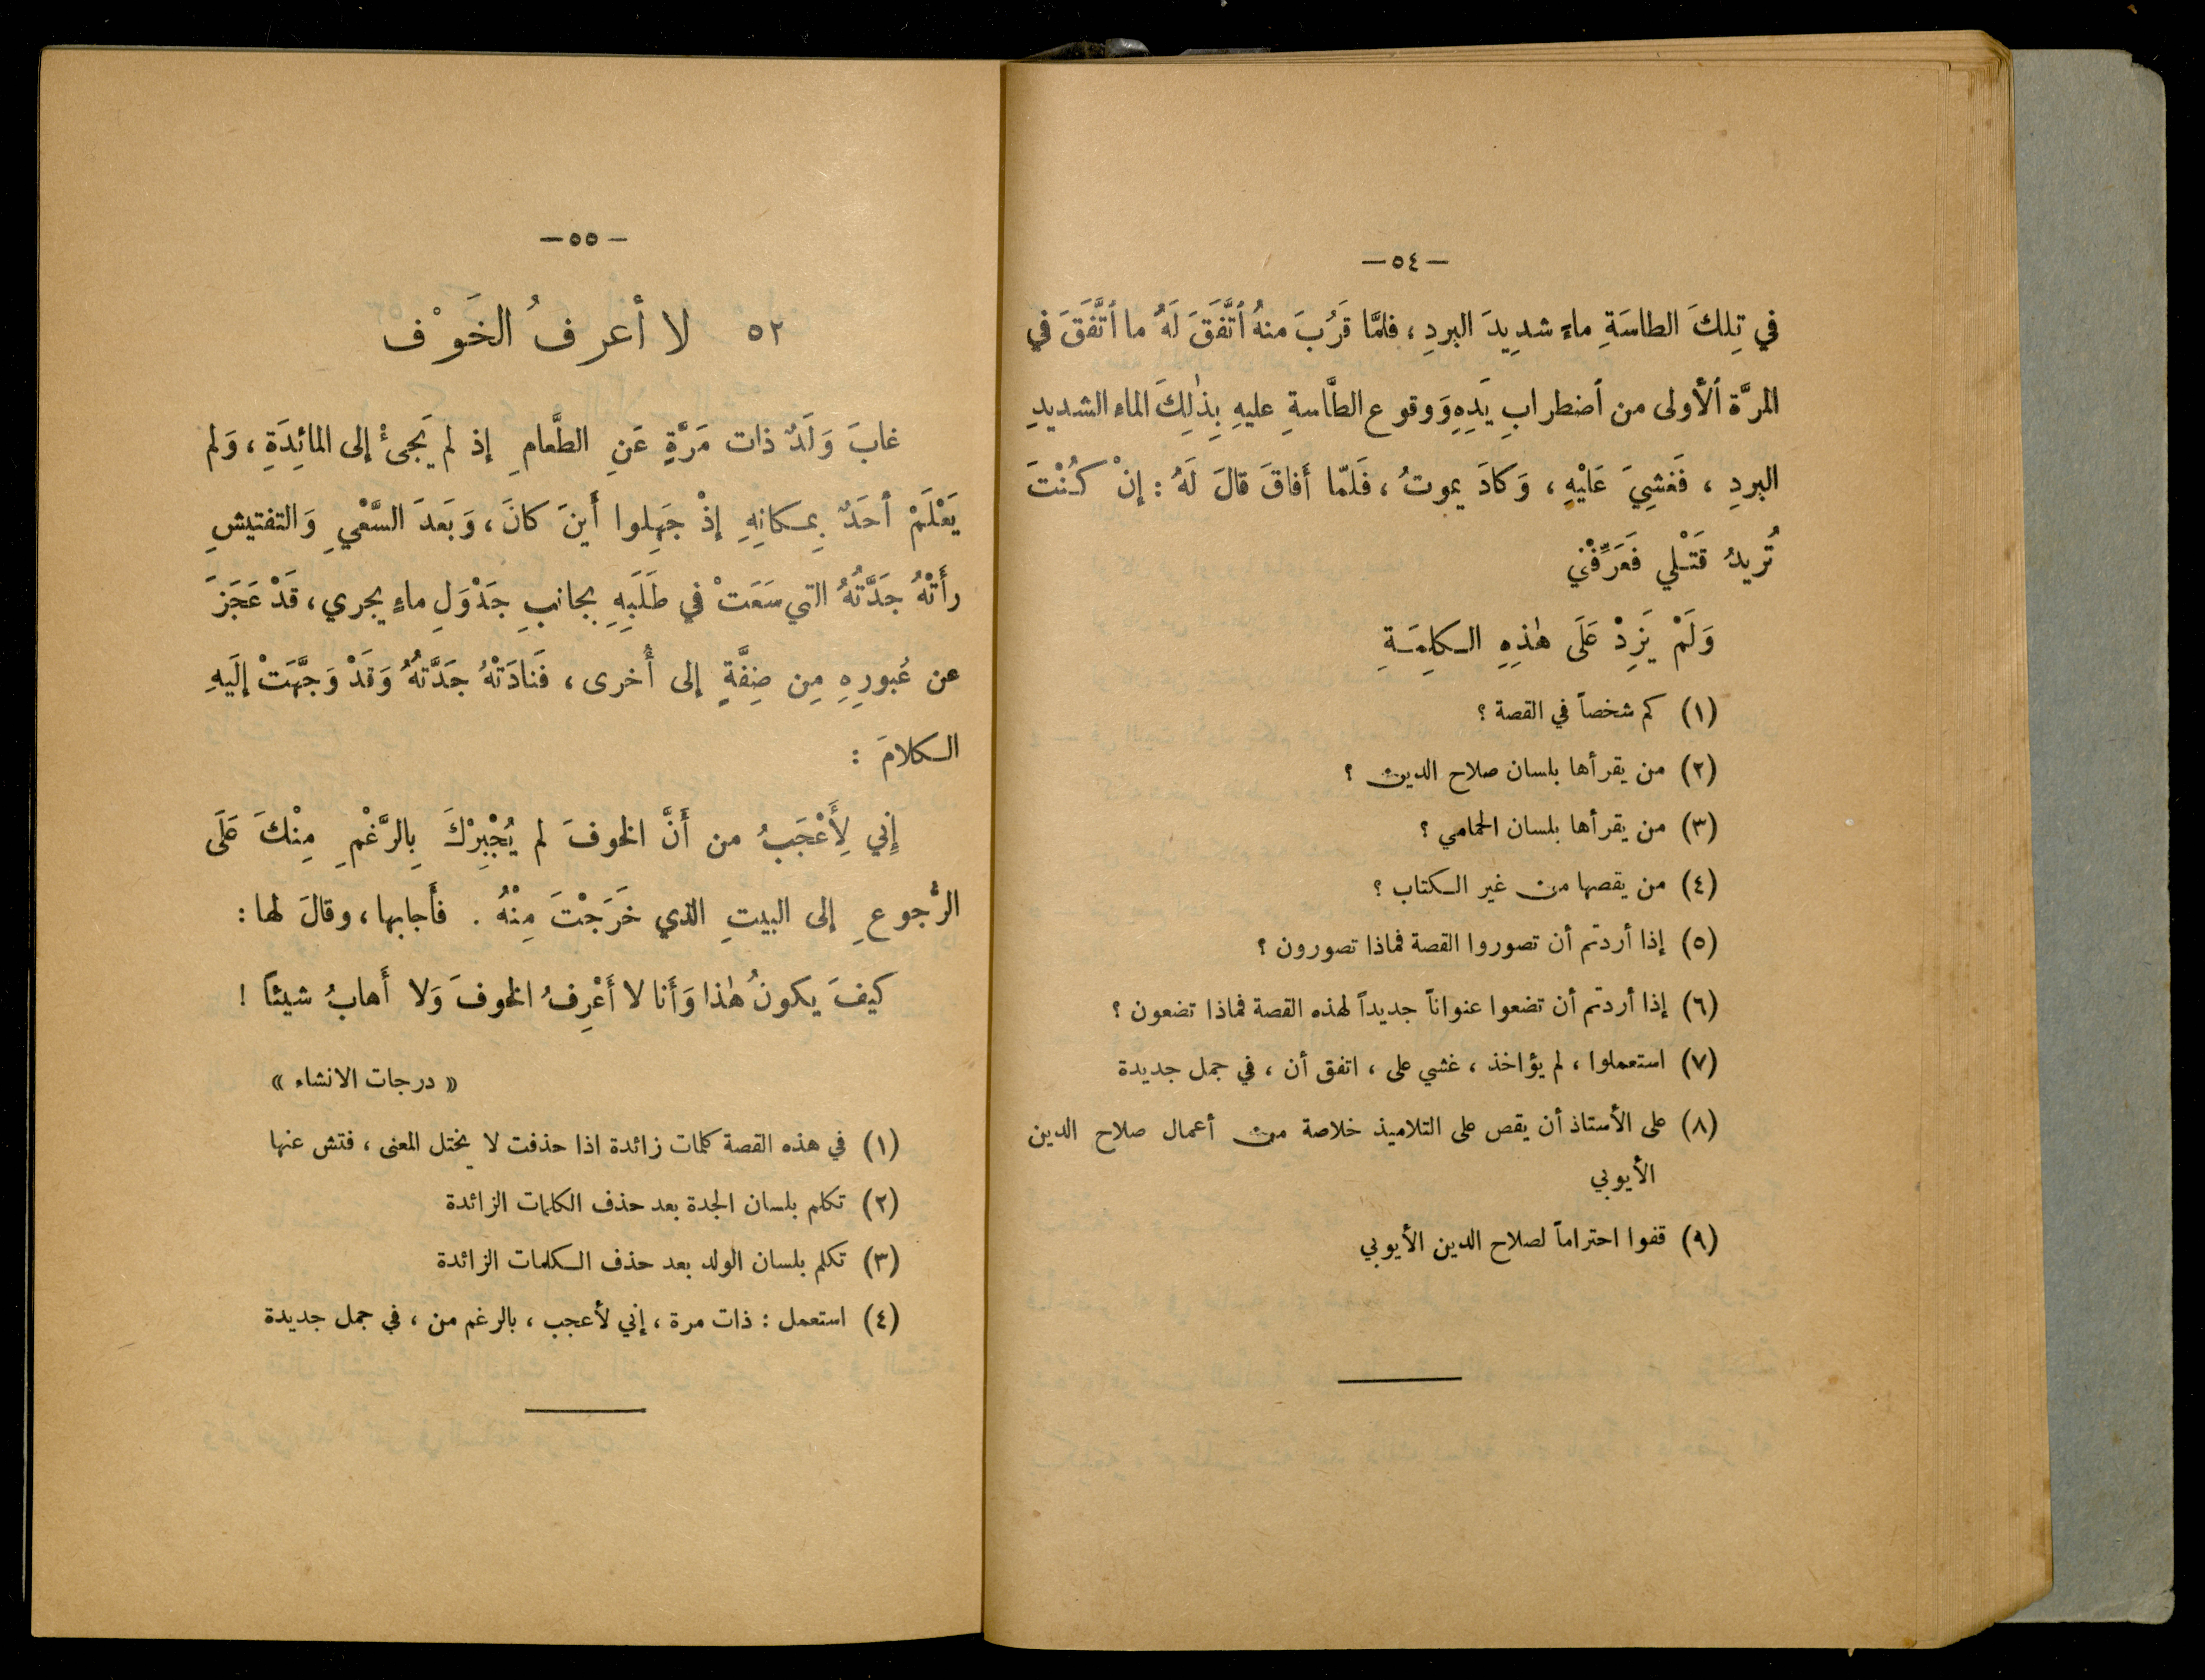 — ٥٤ —
في تِلكَ الطاسَةِ ماءٍ شدِيدَ البردِ ، فلمَّا قَرُبَ منهُ ٱتَّفَقَ لَهُ ما ٱتَّفَقَ في
المرَّة ٱلأولى من ٱضطرابِ يَدِهِ وَوقوع الطَّاسةِ عليهِ بِذٰلِكَ الماء الشديدِ
البردِ ، فَغشِيَ عَلَيْهِ ، وَكادَ يموتُ ، فَلمّا أَفاقَ قالَ لَهُ : إنْ كُنْتَ
تُريدُ قَتْلي فَعَرِّفْني
وَلَمْ يَزِدْ عَلَى هٰذِهِ الكلِمَةِ
(١) كم شخصاً في القصة ؟
(٢) من يقرأها بلسان صلاح الدين ؟
(٣) من يقرأها بلسان الحمامي ؟
(٤) من يقصها من غير الكتاب ؟
(٥) إذا أردتم أن تصوروا القصة فماذا تصورون ؟
(٦) إذا أردتم أن تضعوا عنواناً جديداً لهذه القصة فماذا تضعون ؟
(٧) استعملوا ، لم يؤاخذ ، غشي على ، اتفق أن ، في جمل جديدة
(٨) على الأستاذ أن يقص على التلاميذ خلاصة من أعمال صلاح الدين
الأيوبي
(٩) قفوا احتراماً لصلاح الدين الأيوبي
— ٥٥ —
٥٢ لا أعرفُ الخَوْف
غابَ وَلَدٌ ذات مَرَّةٍ عَنِ الطَّعامِ إذ لم يَجئْ إلى المائِدَةِ ، وَلم
يَعْلَمْ أحَدٌ بِمكانِهِ إذْ جَهِلوا أَينَ كانَ ، وَبَعدَ السَّعْيِ وَالتفتيشِ
رأَتْهُ جَدَّتُهُ التي سَعَتْ في طَلَبِهِ بجانبِ جَدْوَلِ ماءٍ يجري ، قَدْ عَجَزَ
عن عُبورِهِ مِن ضِفَّةٍ إلى أُخرى ، فَنادَتْهُ جَدَّتُهُ وَقَدْ وَجَّهَتْ إلَيهِ
الكلامَ :
إني لِأَعْجَبُ من أَنَّ الخوفَ لم يُجْبِرْكَ بِالرَّغْمِ مِنْكَ عَلَى
الرُّجوعِ إلى البيتِ الذي خَرَجْتَ مِنْهُ . فأَجابها ، وقالَ لها :
كيفَ يكونُ هٰذا وَأَنا لا أَعْرِفُ الخوفَ وَلا أَهابُ شيئاً !
« درجات الانشاء »
(١) في هذه القصة كلمات زائدة اذا حذفت لا يختل المعنى ، فتش عنها
(٢) تكلم بلسان الجدة بعد حذف الكلمات الزائدة
(٣) تكلم بلسان الولد بعد حذف الكلمات الزائدة
(٤) استعمل : ذات مرة ، إني لأعجب ، بالرغم من ، في جمل جديدة